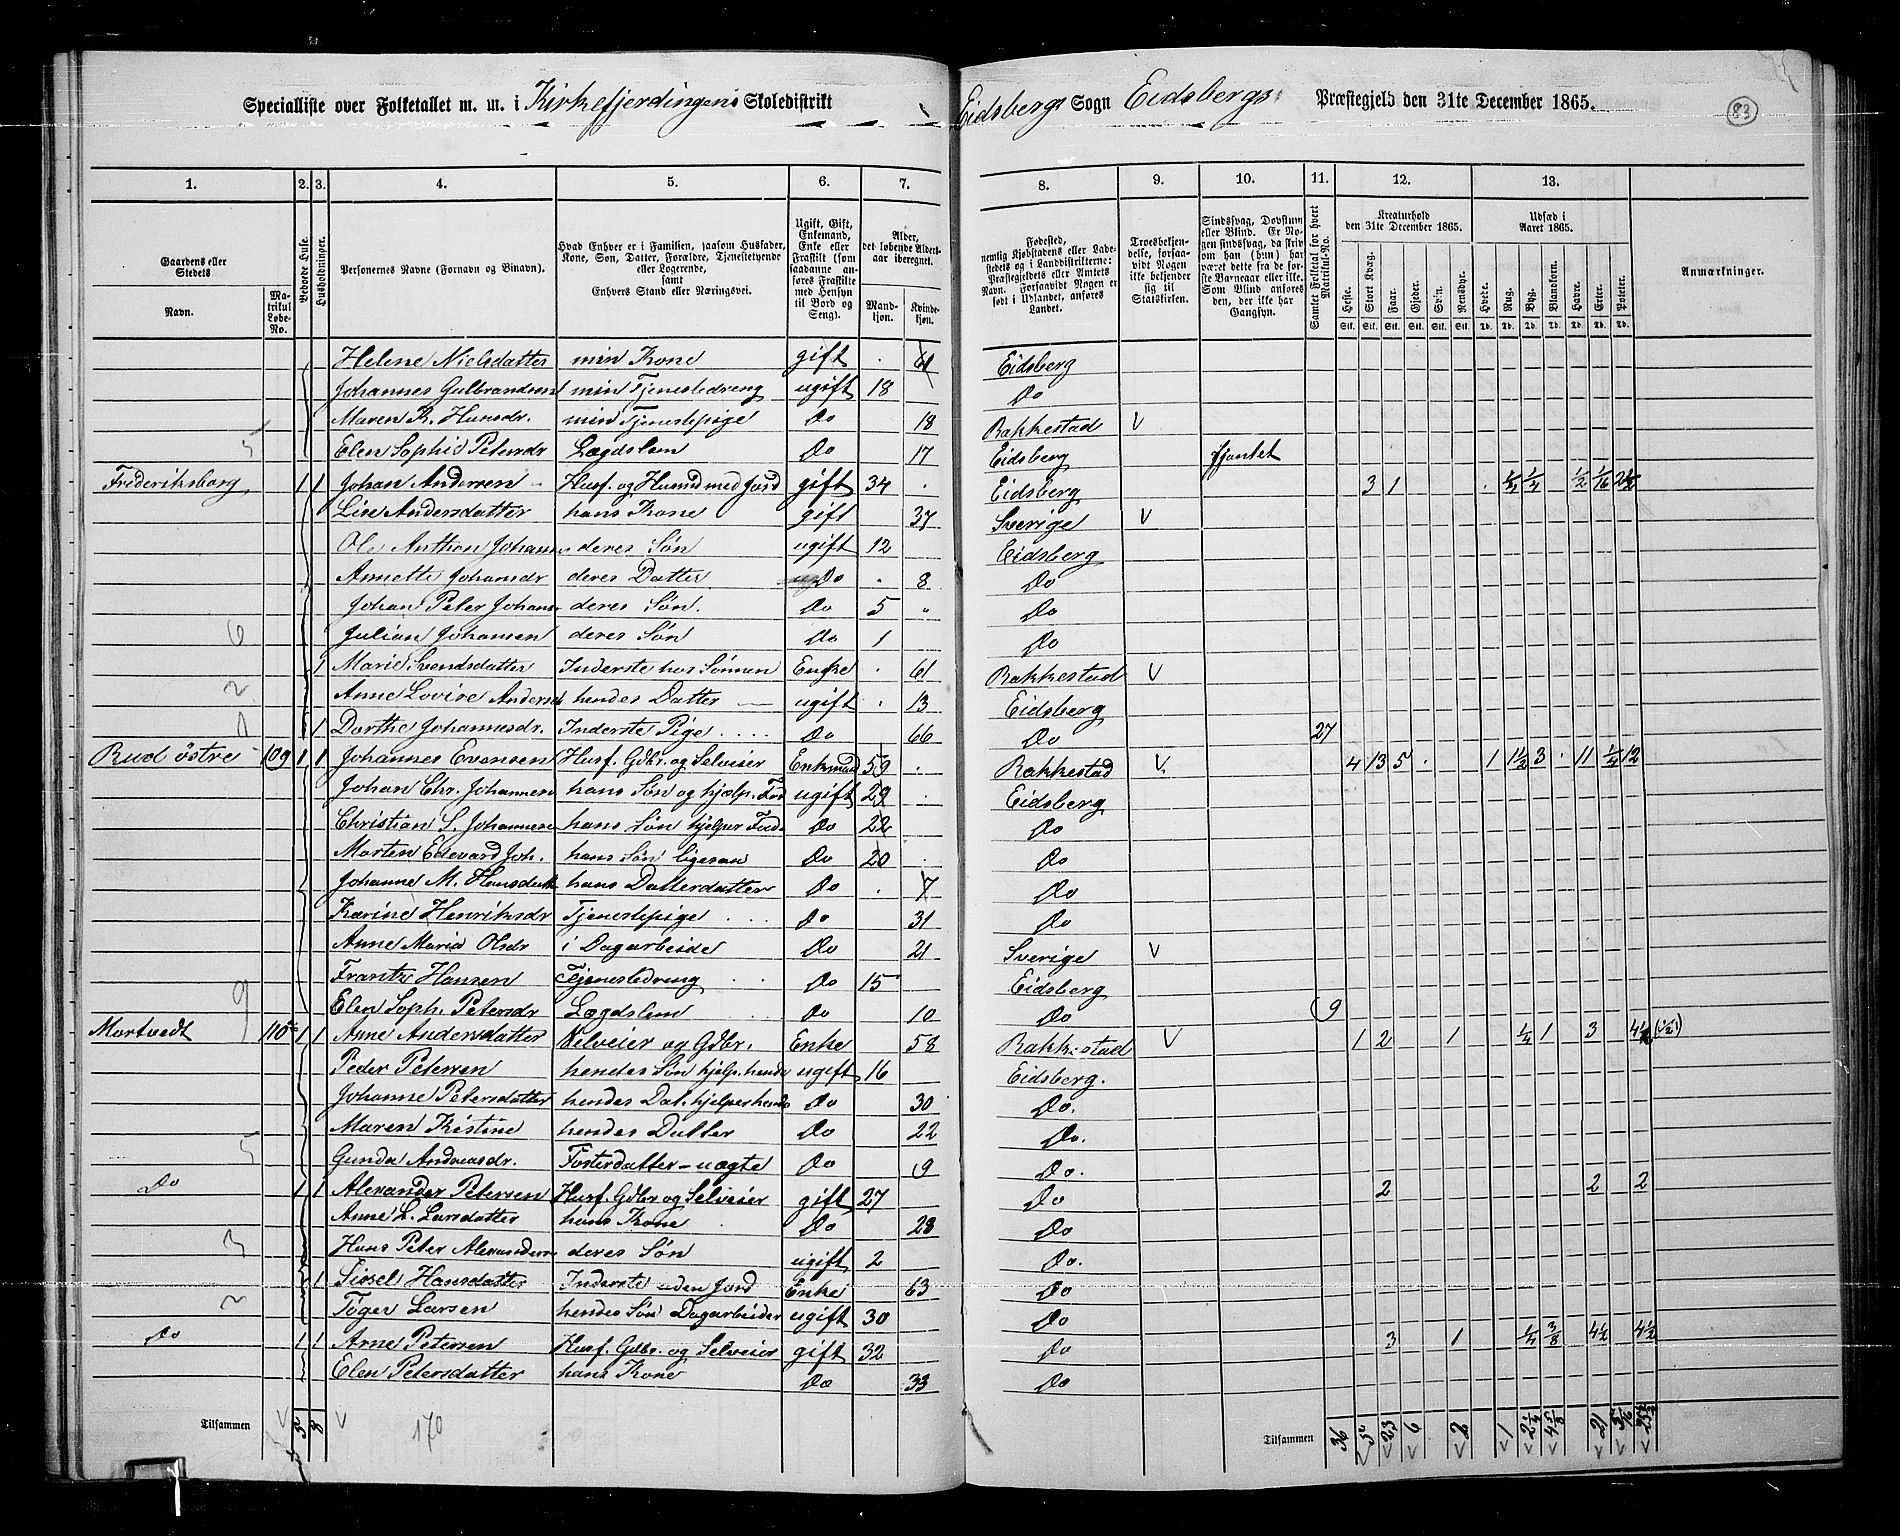 Specialliste over Folketallet m. m. i Kirkefjerdingens Skoledistrikt Eidsbergs Sogn Eidsbergs Præstegjeld den 31te December 1865.
83
1. 2. 3. 4. 5. 6. 7. 8. 9. 10. 11. 12. 13.
Gaardens eller Stedets
Navn.
Matrikul Løbe-No.
Beboede Huse.
Husholdninger.
Personernes Navne (Fornavn og Binavn).
Hvad Enhver er i Familien, saasom Husfader, Kone, Søn, Datter, Forældre, Tjenestetyende eller Logerende, samt Enhvers Stand eller Næringsvei.
Ugift, Gift, Enkemand, Enke eller Fraskilt (som saadanne anføres Fraskilte med Hensyn til Bord og Seng).
Alder, det løbende Aldersaar iberegnet.
Mandkjøn. Kvindekjøn.
Fødested, nemlig Kjøbstadens eller Ladestedets og i Landdistrikterne: Præstegjeldets eller Amtets Navn. Forsaavidt Nogen er født i Udlandet, anføres Landet.
Troesbekjendelse, forsaavidt Nogen ikke bekjender sig til Statskirken.
Sindssvag, Døvstum eller Blind. Er Nogen sindssvag, da skriv om han (hun) har været dette fra de første Barneaar eller ikke. Som Blind anføres den, der ikke har Gangsyn.
Samlet Folketal for hvert Matrikul-No.
Kreaturhold den 31te December 1865.
Heste. Stort Kvæg. Faar. Gjeder. Svin. Rensdyr.
Udsæd i Aaret 1865.
Hvede. Rug. Byg. Blandkorn. Havre. Erter. Poteter.
Anmærkninger.
Helene Nielsdatter min Kone gift 61 Eidsberg
Johannes Gulbrandsen min Tjenestedreng ugift 18 Do
Maren K. Hansdr. min Tjenestepige Do 18 Rakkestad V
5 Elen Sophie Petersdr Lægdslem Do 17 Eidsberg fjantet
Frederiksborg 1 1 Johan Andersen Husf. og Husmd med Jord gift 34 Eidsberg 3 1 1/4 1/4 1/2 1/16 2 1/2
Lise Andersdatter hans Kone gift 37 Sverige V
Ole Anthon Johanns deres Søn ugift 12 Eidsberg
Annette Johansdr deres Datter Do 8 Do
Johan Peter Johans deres Søn. Do 5 Do
6 Julian Johansen deres Søn Do 1 Do
1 Marie Svendsdatter Inderste hos Sønnen Enke 61 Rakkestad V
2 Anne Lovise Anders hendes Datter ugift 13 Eidsberg
1 1 Dorthe Johannesdr. Inderste Pige Do 66 Do 27
Rud østre 109 1 1 Johannes Evensen Husf. Gdbr. og Selveier Enkmand 59 Rakkestad V 4 13 5 1 1 1/2 3 11 1/4 12
Johan Chr. Johannesn hans Søn og hjælp. Fad ugift 29 Eidsberg
Christian S. Johannesn hans Søn hjelper Fad Do 22 Do
Morten Edevard Joh. hans Søn ligesaa Do 20 Do
Johanne M. Hansdatt hans Datterdatter Do 7 Do
Karine Henriksdr Tjenestepige Do 31 Do
Anne Maria Olsdr i Dagarbeide Do 21 Sverige V
Frantz Hansen Tjenestedreng Do 15 Eidsberg
9 Elen Soph. Petersdr Lægdslem Do 10 Do 9
Mortvedt 110 1 1 Anne Andersdatter Selveier og Gdbr. Enke 58 Rakkestad V 1 2 1 1/4 1 3 4 1/2
Peder Petersen hendes Søn hjelp. hende ugift 16 Eidsberg.
Johanne Petersdatter hendes Dat. hjelper hende Do 30 Do.
Maren Kistine hendes Datter Do 22 Do.
5 Gunda Andreasdr. Fosterdatter - uægte Do 9 Do.
Do 1 1 Alexander Petersen Husf. Gdbr og Selveier gift 27 Do 2 2 2
Anne L. Larsdatter hans Kone Do 28 Do
3 Hans Peter Alexandersn deres Søn ugift 2 Do.
1 Sissel Hansdatter Inderste uden Jord Enke 63 Do
2 Tøger Larsen hendes Søn Dagarbeider ugift 30 Do
Do 1 1 Arne Petersen Husf. Gdbr. og Selveier gift 32 Do 3 1 1/4 3/8 4 1/2 4 1/2
Elen Petersdatter hans Kone Do 33 Do
Tilsammen V 5 8 V 170 Tilsammen 36 23 6 2 1 21